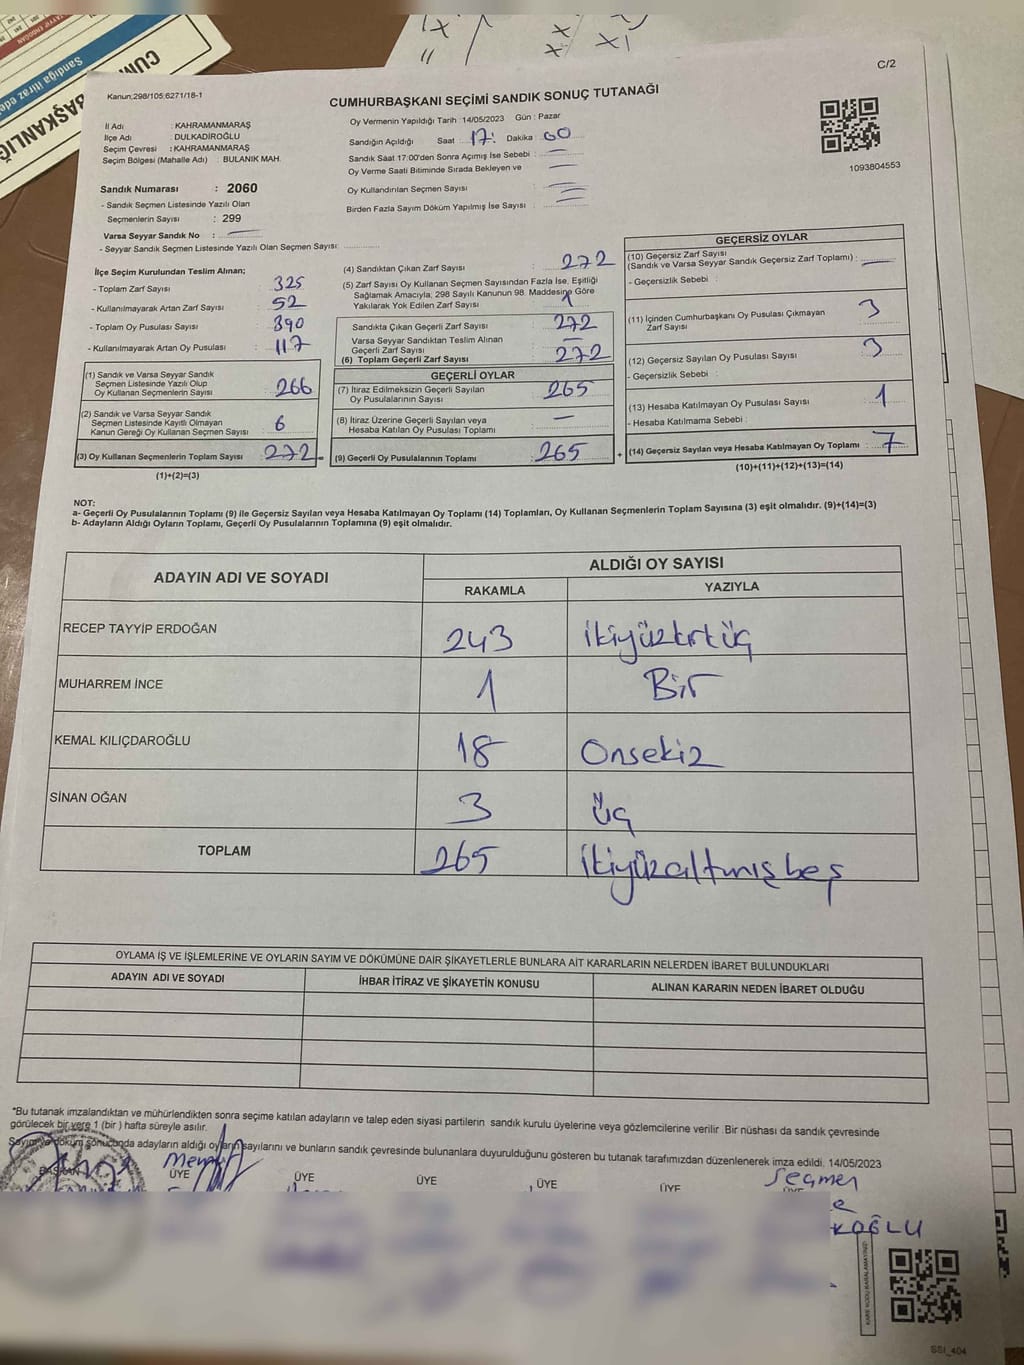 C/2
Kanun,298/105,6271/18-1
CUMHURBAŞKANI SEÇİMİ SANDIK SONUÇ TUTANAĞI
İl Adı : KAHRAMANMARAŞ
İlçe Adı : DULKADİROĞLU
Seçim Çevresi : KAHRAMANMARAŞ
Seçim Bölgesi (Mahalle Adı) : BULANIK MAH.
Sandık Numarası : 2060
- Sandık Seçmen Listesinde Yazılı Olan
Seçmenlerin Sayısı : 299
Varsa Seyyar Sandık No :
- Seyyar Sandık Seçmen Listesinde Yazılı Olan Seçmen Sayısı:
Oy Vermenin Yapıldığı Tarih : 14/05/2023 Gün : Pazar
Sandığın Açıldığı Saat 17: Dakika 00
Sandık Saat 17:00'den Sonra Açımış İse Sebebi :
Oy Verme Saati Bitiminde Sırada Bekleyen ve
Oy Kullandırılan Seçmen Sayısı
Birden Fazla Sayım Döküm Yapılmış İse Sayısı :
1093804553
İlçe Seçim Kurulundan Teslim Alınan;
- Toplam Zarf Sayısı : 325
- Kullanılmayarak Artan Zarf Sayısı : 52
- Toplam Oy Pusulası Sayısı : 390
- Kullanılmayarak Artan Oy Pusulası : 117
(1) Sandık ve Varsa Seyyar Sandık
Seçmen Listesinde Yazılı Olup
Oy Kullanan Seçmenlerin Sayısı : 266
(2) Sandık ve Varsa Seyyar Sandık
Seçmen Listesinde Kayıtlı Olmayan
Kanun Gereği Oy Kullanan Seçmen Sayısı : 6
(3) Oy Kullanan Seçmenlerin Toplam Sayısı : 272
(1)+(2)=(3)
(4) Sandıktan Çıkan Zarf Sayısı : 272
(5) Zarf Sayısı Oy Kullanan Seçmen Sayısından Fazla İse, Eşitliği
Sağlamak Amacıyla; 298 Sayılı Kanunun 98. Maddesine Göre
Yakılarak Yok Edilen Zarf Sayısı : 1
Sandıkta Çıkan Geçerli Zarf Sayısı : 272
Varsa Seyyar Sandıktan Teslim Alınan
Geçerli Zarf Sayısı :
(6) Toplam Geçerli Zarf Sayısı : 272
GEÇERLİ OYLAR
(7) İtiraz Edilmeksizin Geçerli Sayılan
Oy Pusulalarının Sayısı : 265
(8) İtiraz Üzerine Geçerli Sayılan veya
Hesaba Katılan Oy Pusulası Toplamı :
= (9) Geçerli Oy Pusulalarının Toplamı : 265
GEÇERSİZ OYLAR
(10) Geçersiz Zarf Sayısı
(Sandık ve Varsa Seyyar Sandık Geçersiz Zarf Toplamı) :
- Geçersizlik Sebebi :
(11) İçinden Cumhurbaşkanı Oy Pusulası Çıkmayan
Zarf Sayısı : 3
(12) Geçersiz Sayılan Oy Pusulası Sayısı : 3
- Geçersizlik Sebebi :
(13) Hesaba Katılmayan Oy Pusulası Sayısı : 1
- Hesaba Katılmama Sebebi :
+ (14) Geçersiz Sayılan veya Hesaba Katılmayan Oy Toplamı : 7
(10)+(11)+(12)+(13)=(14)
NOT:
a- Geçerli Oy Pusulalarının Toplamı (9) ile Geçersiz Sayılan veya Hesaba Katılmayan Oy Toplamı (14) Toplamları, Oy Kullanan Seçmenlerin Toplam Sayısına (3) eşit olmalıdır. (9)+(14)=(3)
b- Adayların Aldığı Oyların Toplamı, Geçerli Oy Pusulalarının Toplamına (9) eşit olmalıdır.
ADAYIN ADI VE SOYADI ALDIĞI OY SAYISI
RAKAMLA YAZIYLA
RECEP TAYYİP ERDOĞAN 243 İkiyüzkrtüç
MUHARREM İNCE 1 Bir
KEMAL KILIÇDAROĞLU 18 Onsekiz
SİNAN OĞAN 3 üç
TOPLAM 265 İkiyüzaltmışbeş
OYLAMA İŞ VE İŞLEMLERİNE VE OYLARIN SAYIM VE DÖKÜMÜNE DAİR ŞİKAYETLERLE BUNLARA AİT KARARLARIN NELERDEN İBARET BULUNDUKLARI
ADAYIN ADI VE SOYADI İHBAR İTİRAZ VE ŞİKAYETİN KONUSU ALINAN KARARIN NEDEN İBARET OLDUĞU
*Bu tutanak imzalandıktan ve mühürlendikten sonra seçime katılan adayların ve talep eden siyasi partilerin sandık kurulu üyelerine veya gözlemcilerine verilir. Bir nüshası da sandık çevresinde
görülecek bir yere 1 (bir ) hafta süreyle asılır.
Sayım ve döküm sonucunda adayların aldığı oyların sayılarını ve bunların sandık çevresinde bulunanlara duyurulduğunu gösteren bu tutanak tarafımızdan düzenlenerek imza edildi. 14/05/2023
BAŞKAN ÜYE ÜYE ÜYE ÜYE ÜYE ÜYE
Seçmen
KOĞLU
SSI_404